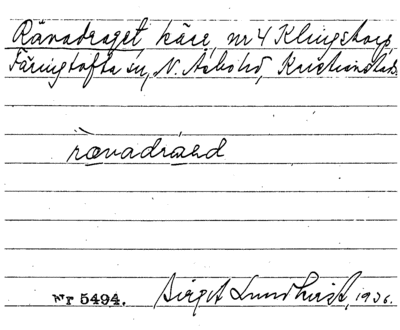 Rävadraget kärr, nr 4 Klingstorp,
Färingtofta sn, N. Åsbo hd, Kristianstads
rævadráed
Nr 5494. Birgit Lundkvist, 1936.